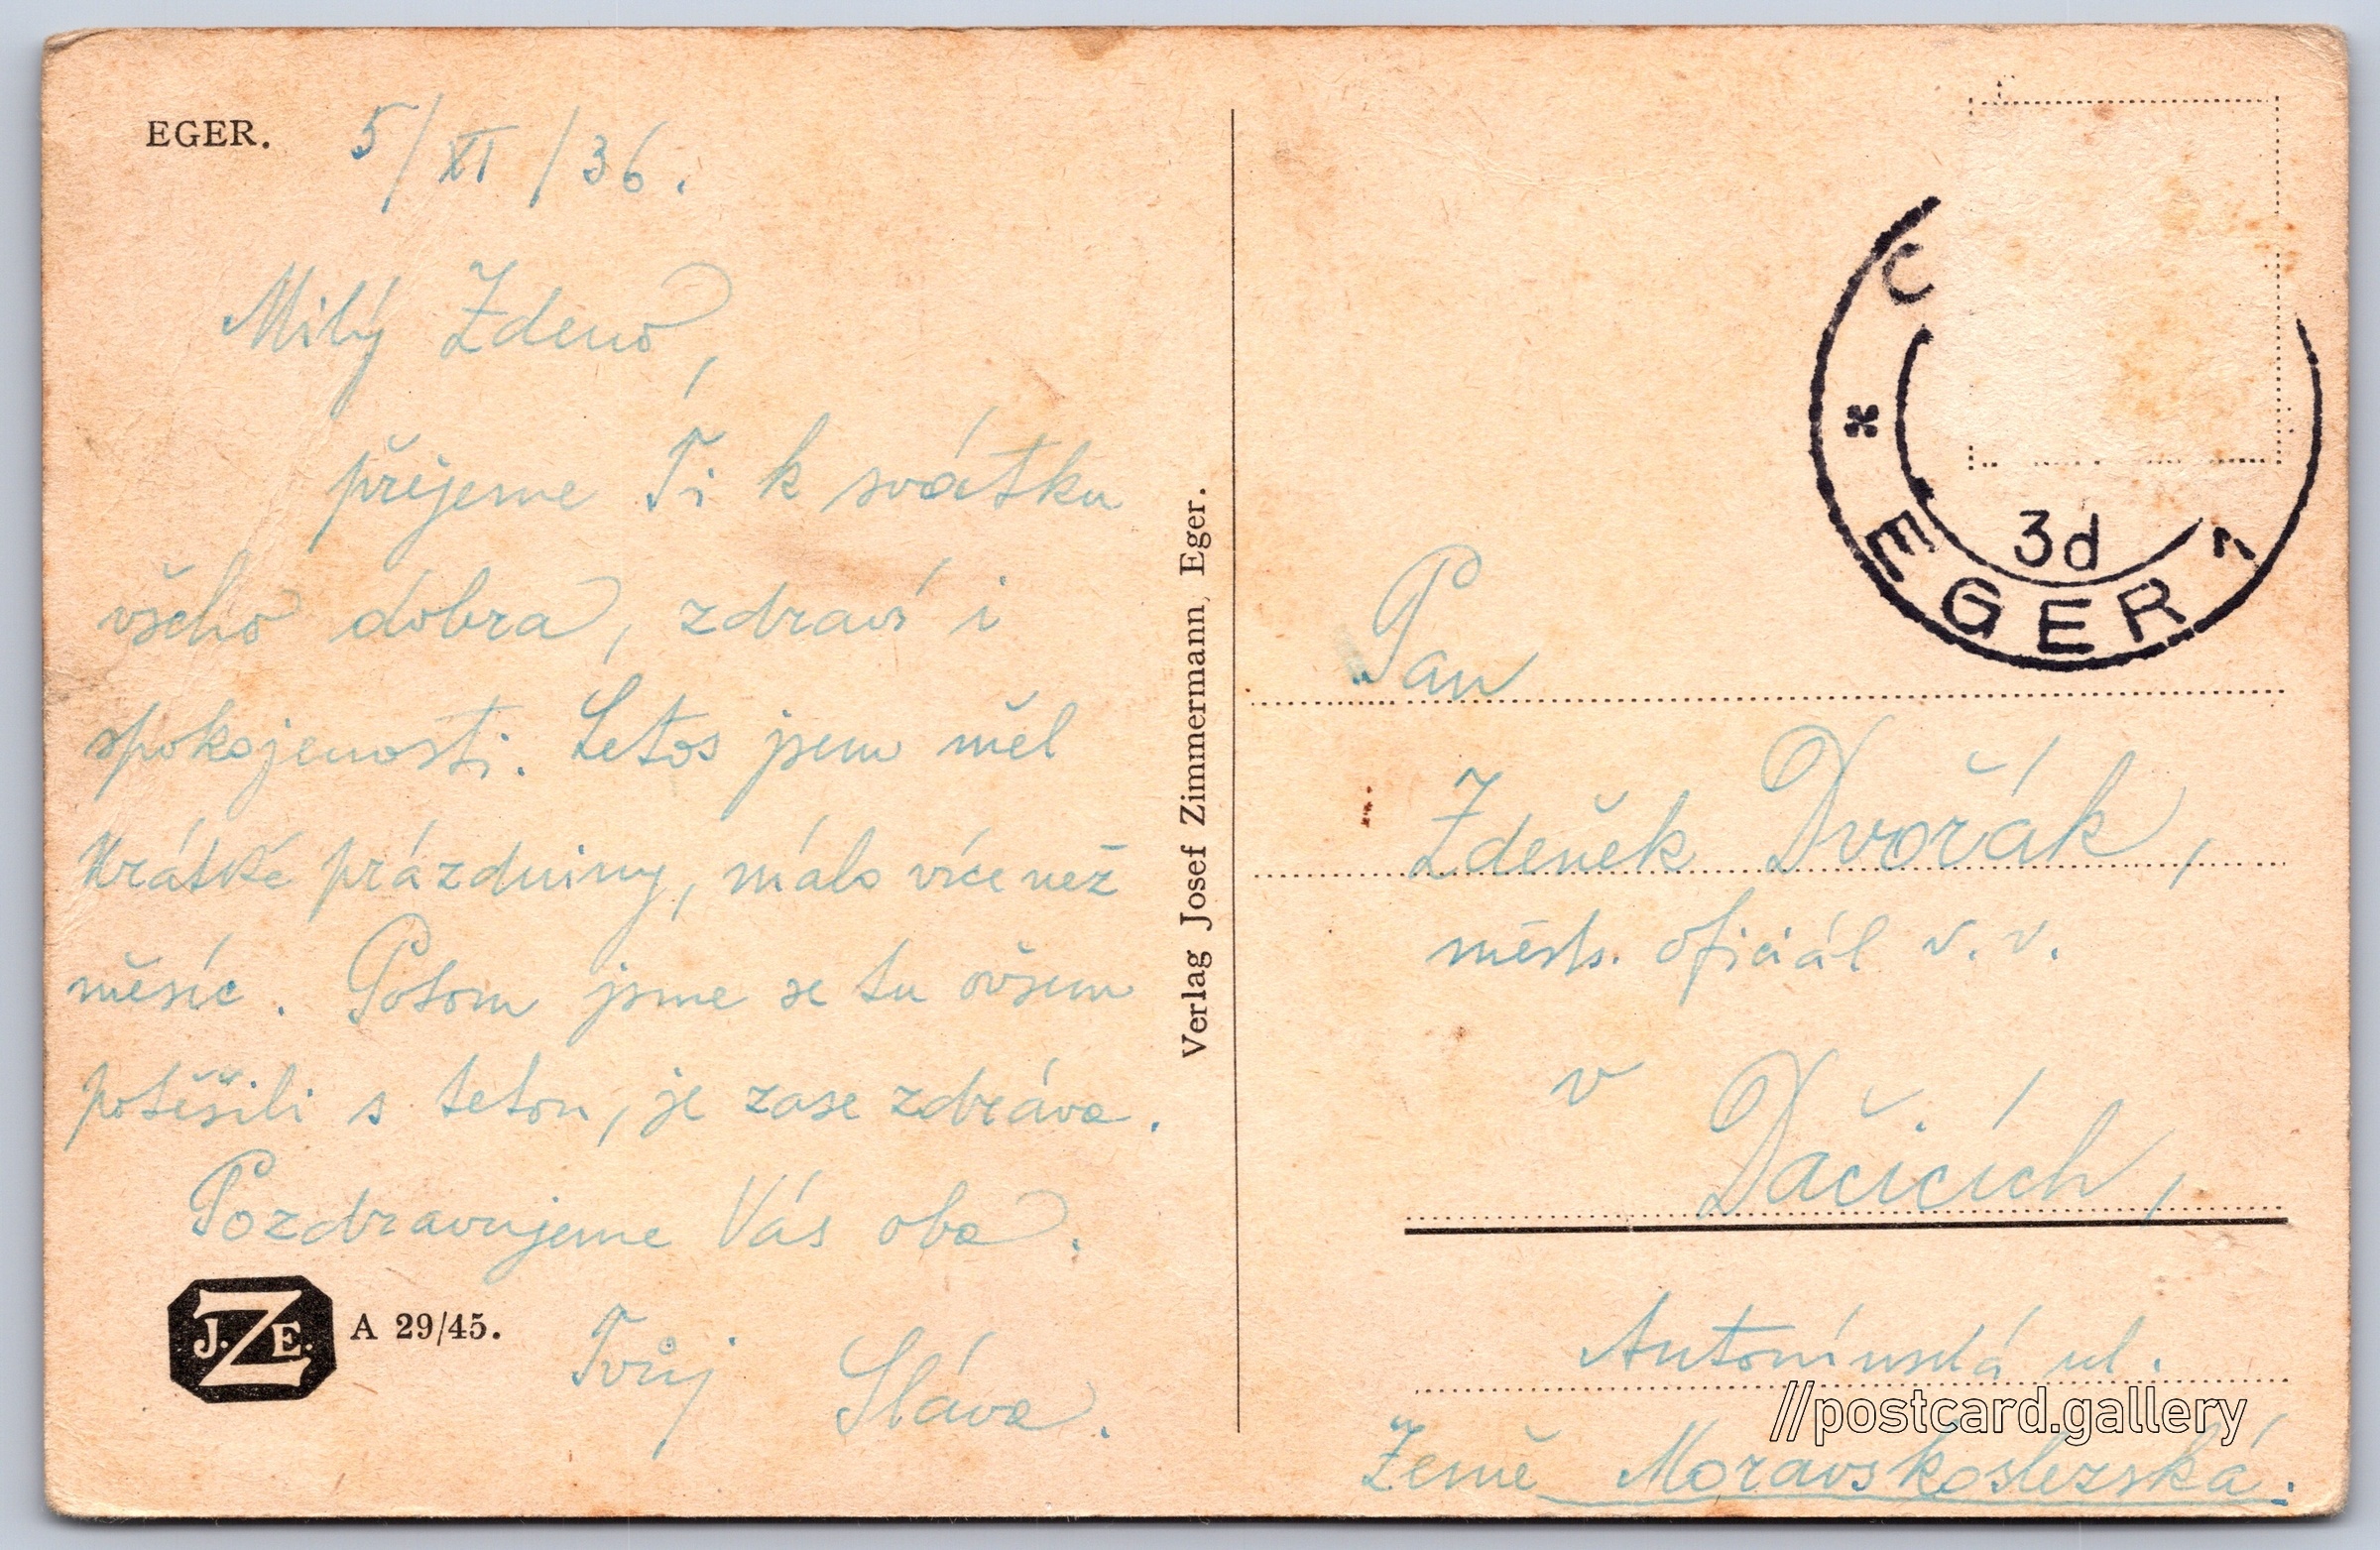 EGER.
5/XI/36.
Milý Zdeno,
přejeme Ti k svátku
všeho dobra, zdraví i
spokojenosti. Letos jsem měl
krátké prázdniny, málo více než
měsíc. Potom jsme se tu ovšem
potěšili s tetou, je zase zdráva.
Pozdravujeme Vás oba.
Tvůj Sláva.
J. Z E.
A 29/45.
Verlag Josef Zimmermann, Eger.
C
3d
EGER 1
Pan
Zdeněk Dvořák,
měst. oficiál v. v.
v Dačicích,
Antonínská ul.
//postcard.gallery
Země Moravskoslezská.